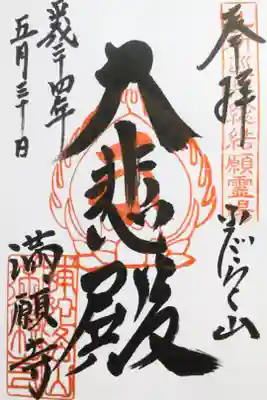 奉拝
結願霊場
ふだらく山
大悲殿
平成二十四年
五月三十日
満願寺